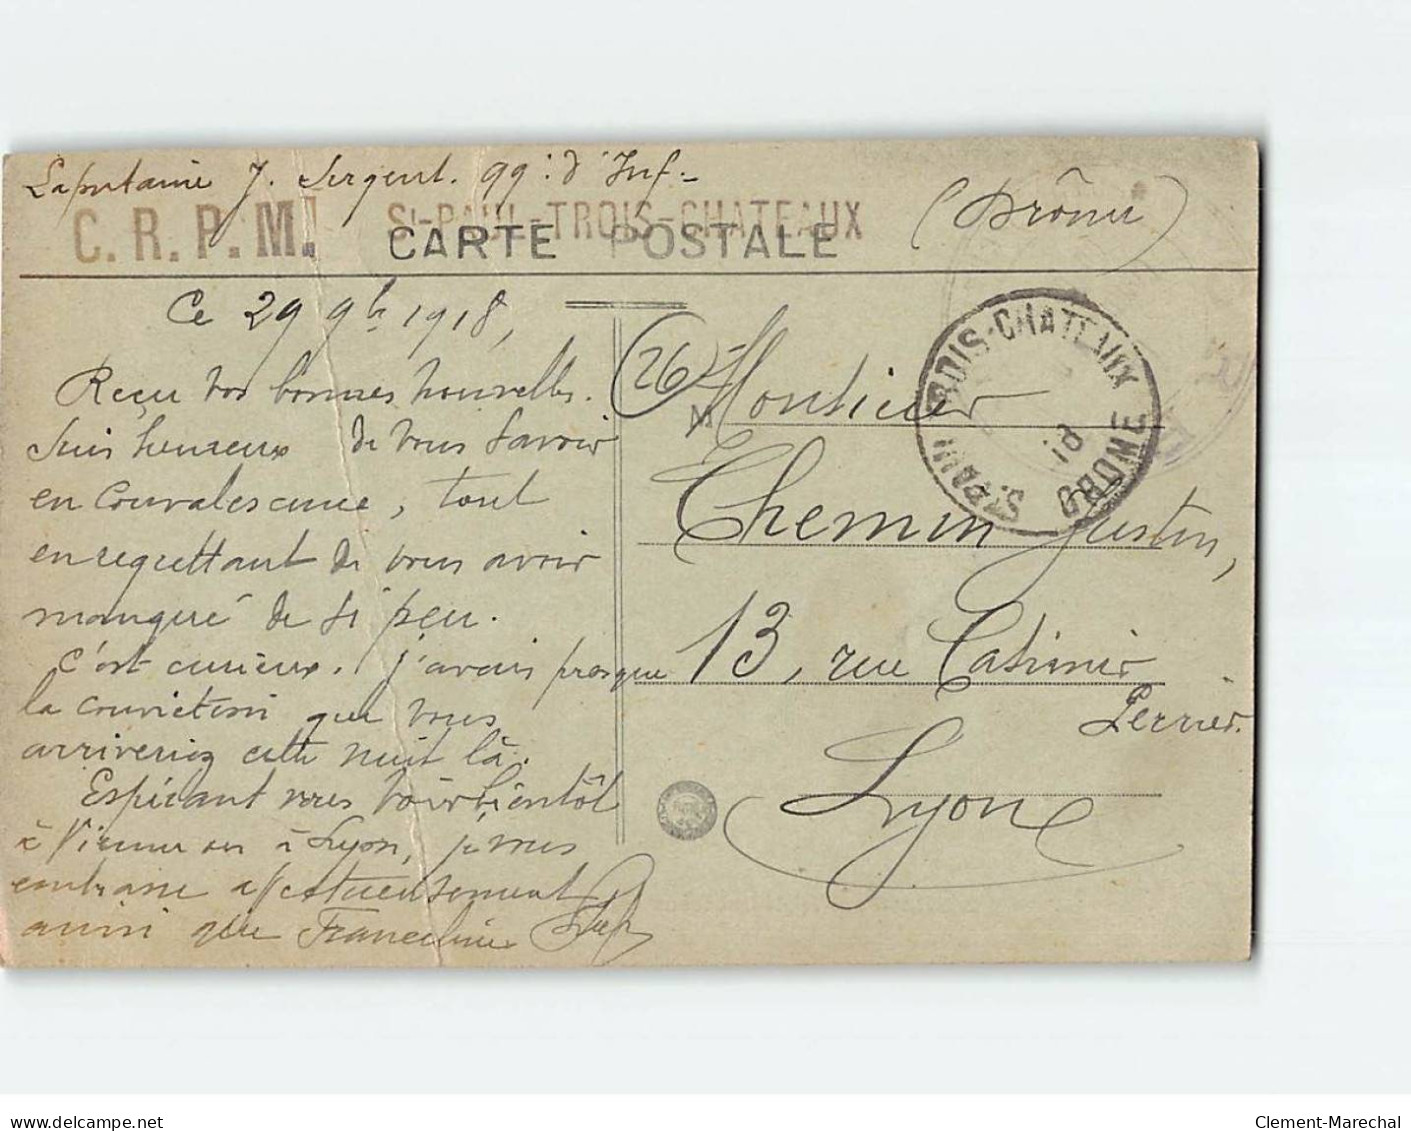 J. Sergent. 99e d'Inf -
C. R. P. M. St-PAUL-TROIS-CHATEAUX (Drôme)
CARTE POSTALE
Ce 29 9b 1918,
Reçu vos bonnes nouvelles.
Suis heureux de vous savoir
en convalescence, tout
en regrettant de vous avoir
manqué de si peu.
C'est curieux. j'avais presque
la conviction que vous
arriveriez cette nuit là.
Espérant vous voir bientôt
à Vienne ou à Lyon, je vous
embrasse affectueusement
ainsi que Franceline
(26)
M
Chemin Justin,
13, rue Casimir
Perrier.
Lyon
ST PAUL TROIS-CHATEAUX
DROME
www.delcampe.net
Clement-Marechal